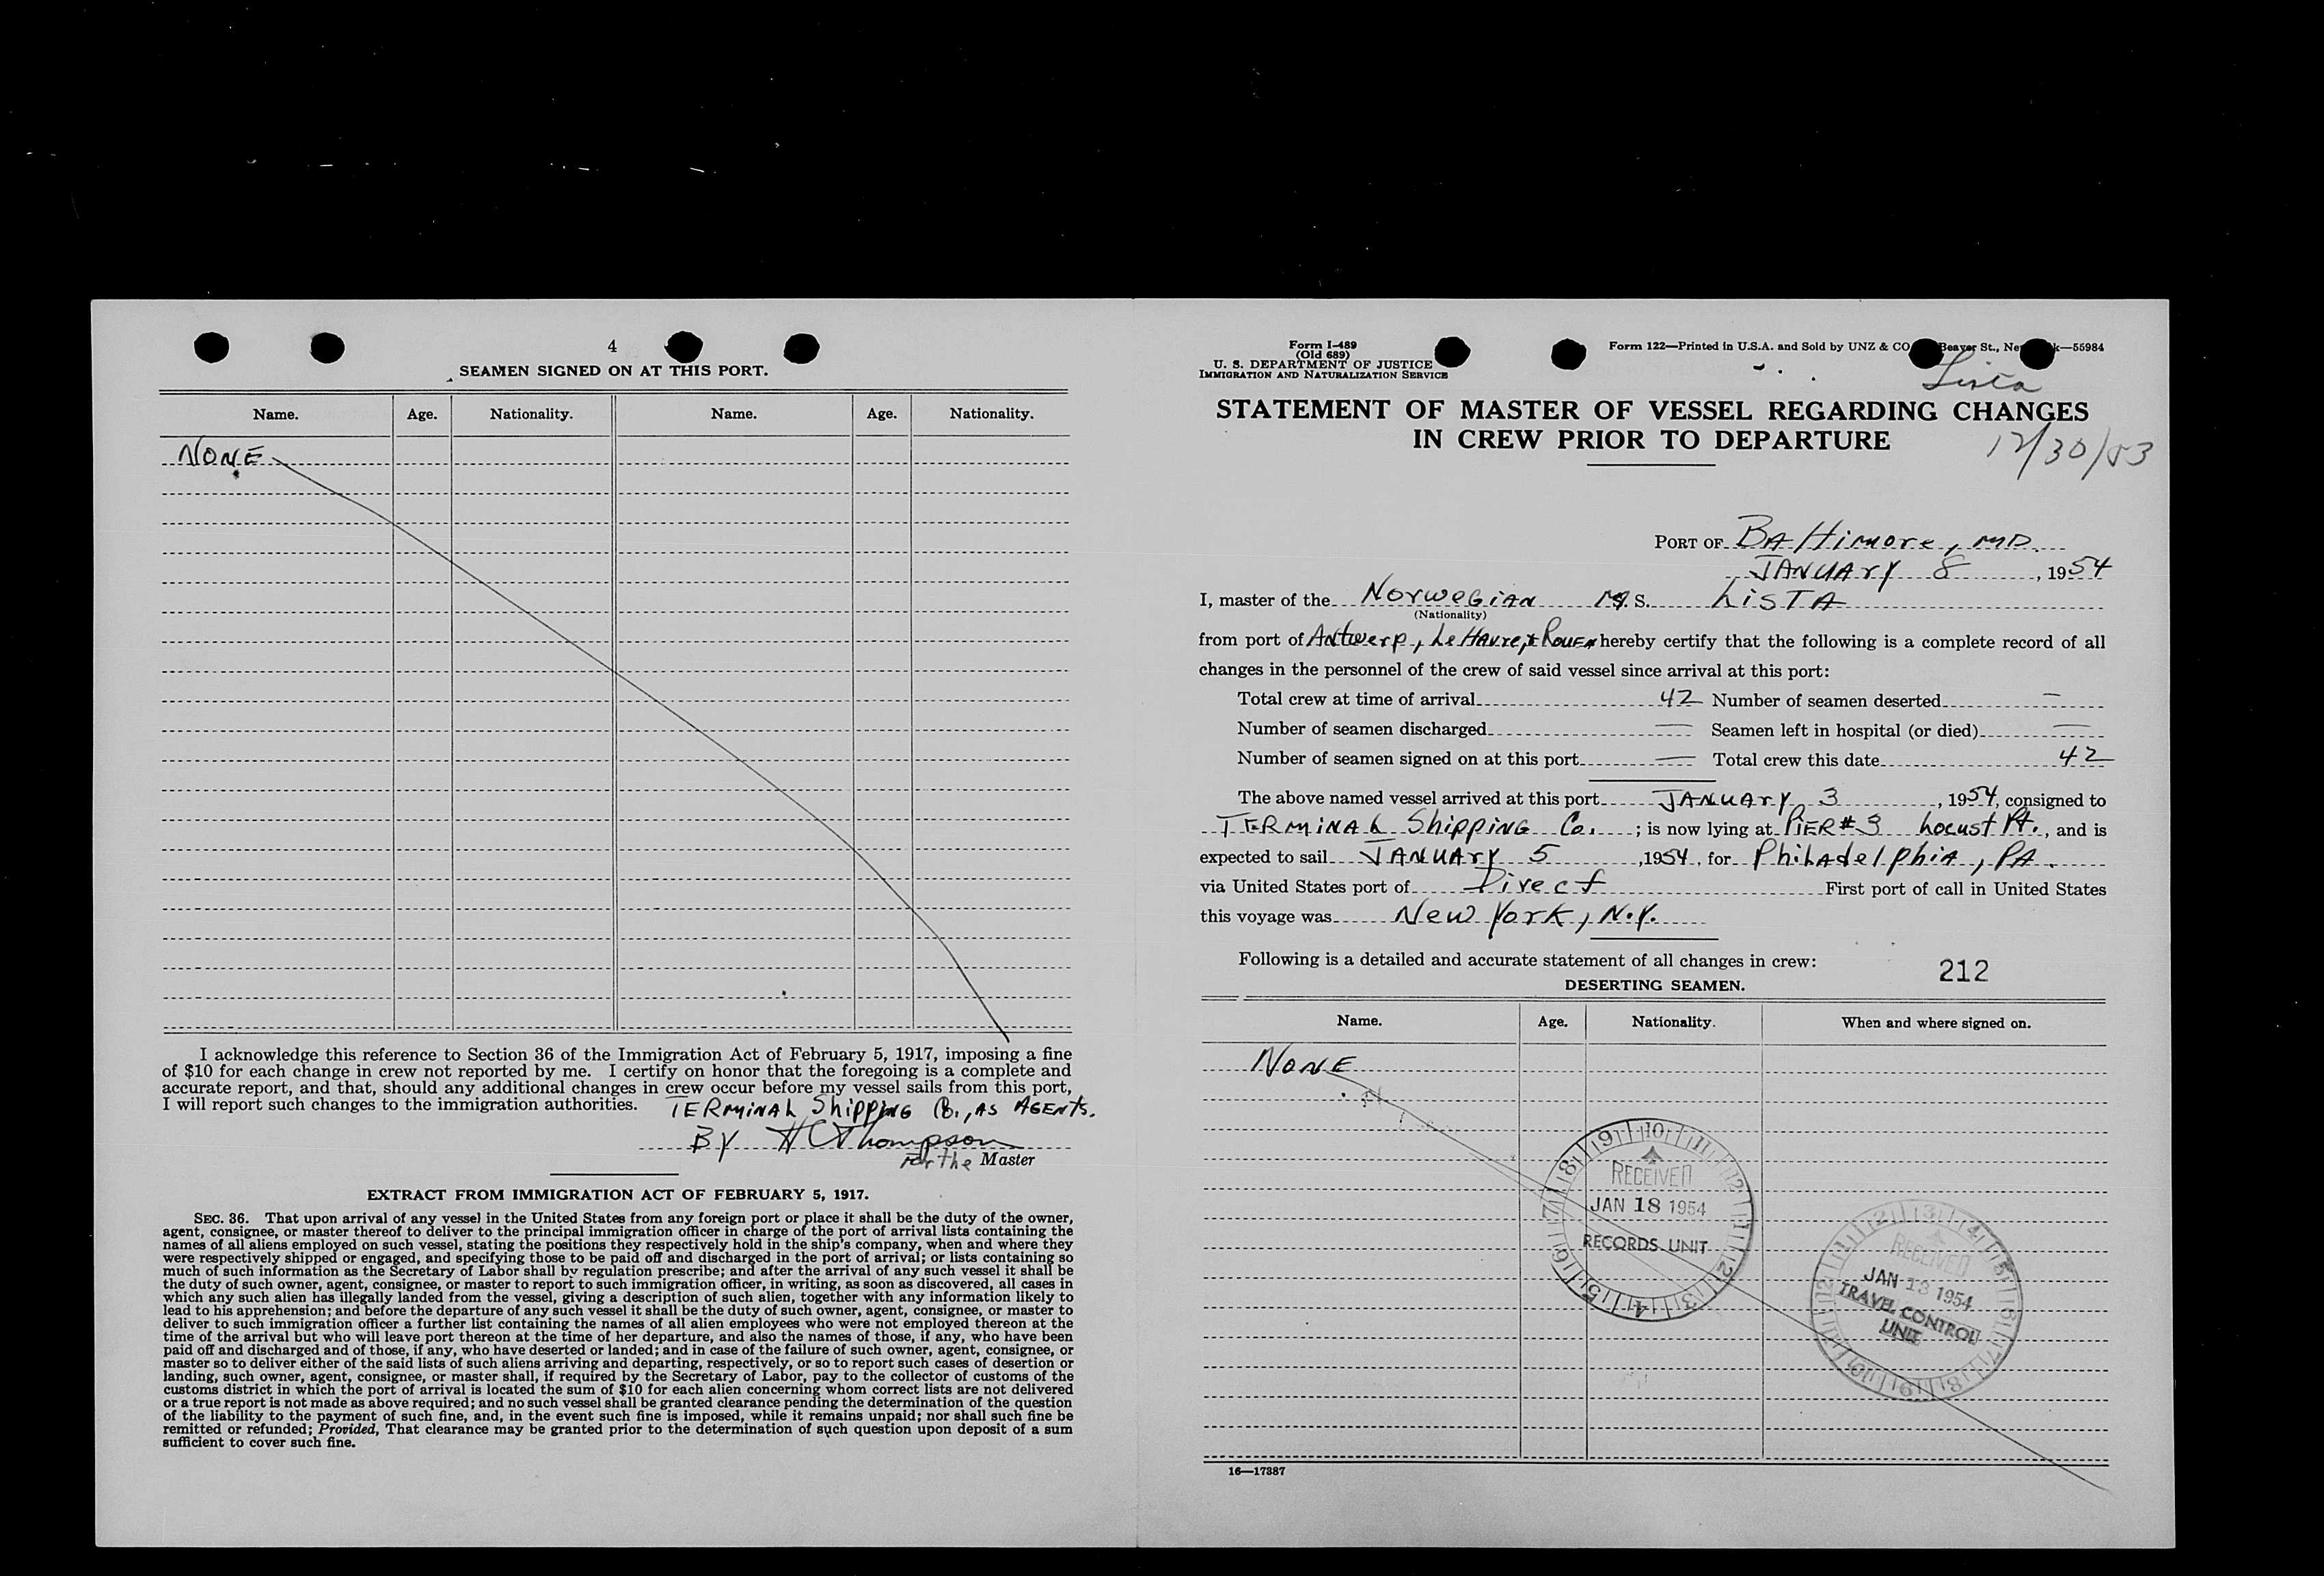 4
SEAMEN SIGNED ON AT THIS PORT.
Name. Age. Nationality. Name. Age. Nationality.
NONE
I acknowledge this reference to Section 36 of the Immigration Act of February 5, 1917, imposing a fine
of $10 for each change in crew not reported by me. I certify on honor that the foregoing is a complete and
accurate report, and that, should any additional changes in crew occur before my vessel sails from this port,
I will report such changes to the immigration authorities. TERMINAL Shipping Co., AS AGENTS.
BY HCThompson
For the Master
EXTRACT FROM IMMIGRATION ACT OF FEBRUARY 5, 1917.
SEC. 36. That upon arrival of any vessel in the United States from any foreign port or place it shall be the duty of the owner,
agent, consignee, or master thereof to deliver to the principal immigration officer in charge of the port of arrival lists containing the
names of all aliens employed on such vessel, stating the positions they respectively hold in the ship's company, when and where they
were respectively shipped or engaged, and specifying those to be paid off and discharged in the port of arrival; or lists containing so
much of such information as the Secretary of Labor shall by regulation prescribe; and after the arrival of any such vessel it shall be
the duty of such owner, agent, consignee, or master to report to such immigration officer, in writing, as soon as discovered, all cases in
which any such alien has illegally landed from the vessel, giving a description of such alien, together with any information likely to
lead to his apprehension; and before the departure of any such vessel it shall be the duty of such owner, agent, consignee, or master to
deliver to such immigration officer a further list containing the names of all alien employees who were not employed thereon at the
time of the arrival but who will leave port thereon at the time of her departure, and also the names of those, if any, who have been
paid off and discharged and of those, if any, who have deserted or landed; and in case of the failure of such owner, agent, consignee, or
master so to deliver either of the said lists of such aliens arriving and departing, respectively, or so to report such cases of desertion or
landing, such owner, agent, consignee, or master shall, if required by the Secretary of Labor, pay to the collector of customs of the
customs district in which the port of arrival is located the sum of $10 for each alien concerning whom correct lists are not delivered
or a true report is not made as above required; and no such vessel shall be granted clearance pending the determination of the question
of the liability to the payment of such fine, and, in the event such fine is imposed, while it remains unpaid; nor shall such fine be
remitted or refunded; Provided, That clearance may be granted prior to the determination of such question upon deposit of a sum
sufficient to cover such fine.
Form I-489
(Old 689)
U. S. DEPARTMENT OF JUSTICE
IMMIGRATION AND NATURALIZATION SERVICE
Form 122—Printed in U.S.A. and Sold by UNZ & CO Beaver St., Ne k—55984
Lista
STATEMENT OF MASTER OF VESSEL REGARDING CHANGES
IN CREW PRIOR TO DEPARTURE
12/30/53
PORT OF Baltimore, MD.
JANUARY 8, 1954
I, master of the Norwegian M.S. LISTA
(Nationality)
from port of Antwerp, Le Havre, & Rouen hereby certify that the following is a complete record of all
changes in the personnel of the crew of said vessel since arrival at this port:
Total crew at time of arrival 42 Number of seamen deserted —
Number of seamen discharged — Seamen left in hospital (or died) —
Number of seamen signed on at this port — Total crew this date 42
The above named vessel arrived at this port JANUARY 3, 1954, consigned to
TERMINAL Shipping Co. ; is now lying at PIER #3 Locust Pt., and is
expected to sail JANUARY 5, 1954, for Philadelphia, PA.
via United States port of Direct First port of call in United States
this voyage was New York, N.Y.
Following is a detailed and accurate statement of all changes in crew:
212
DESERTING SEAMEN.
Name. Age. Nationality. When and where signed on.
NONE
RECEIVED
JAN 18 1954
RECORDS UNIT
RECEIVED
JAN 13 1954
TRAVEL CONTROL
UNIT
16—17887